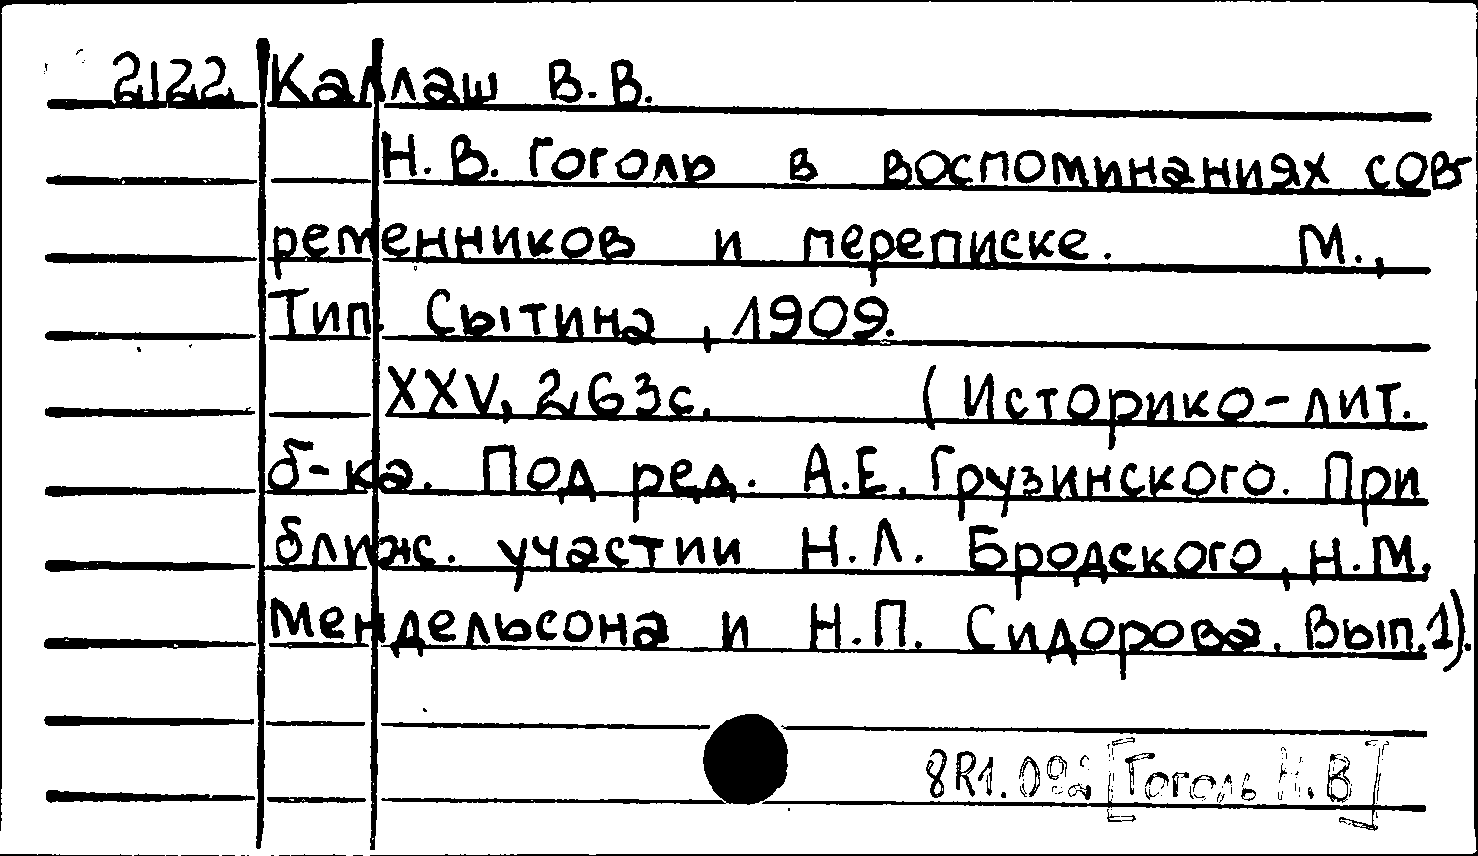 2122 Каллаш В.В.
Н.В. Гоголь в воспоминаниях сов-
ременников и переписке. М.,
Тип. Сытина, 1909.
XXV, 263с. (Историко-лит.
б-ка. Под ред. А.Е. Грузинского. При
ближ. участии Н.Л. Бродского, Н.М.
Мендельсона и Н.П. Сидорова. Вып.1).
[Гоголь Н.В]